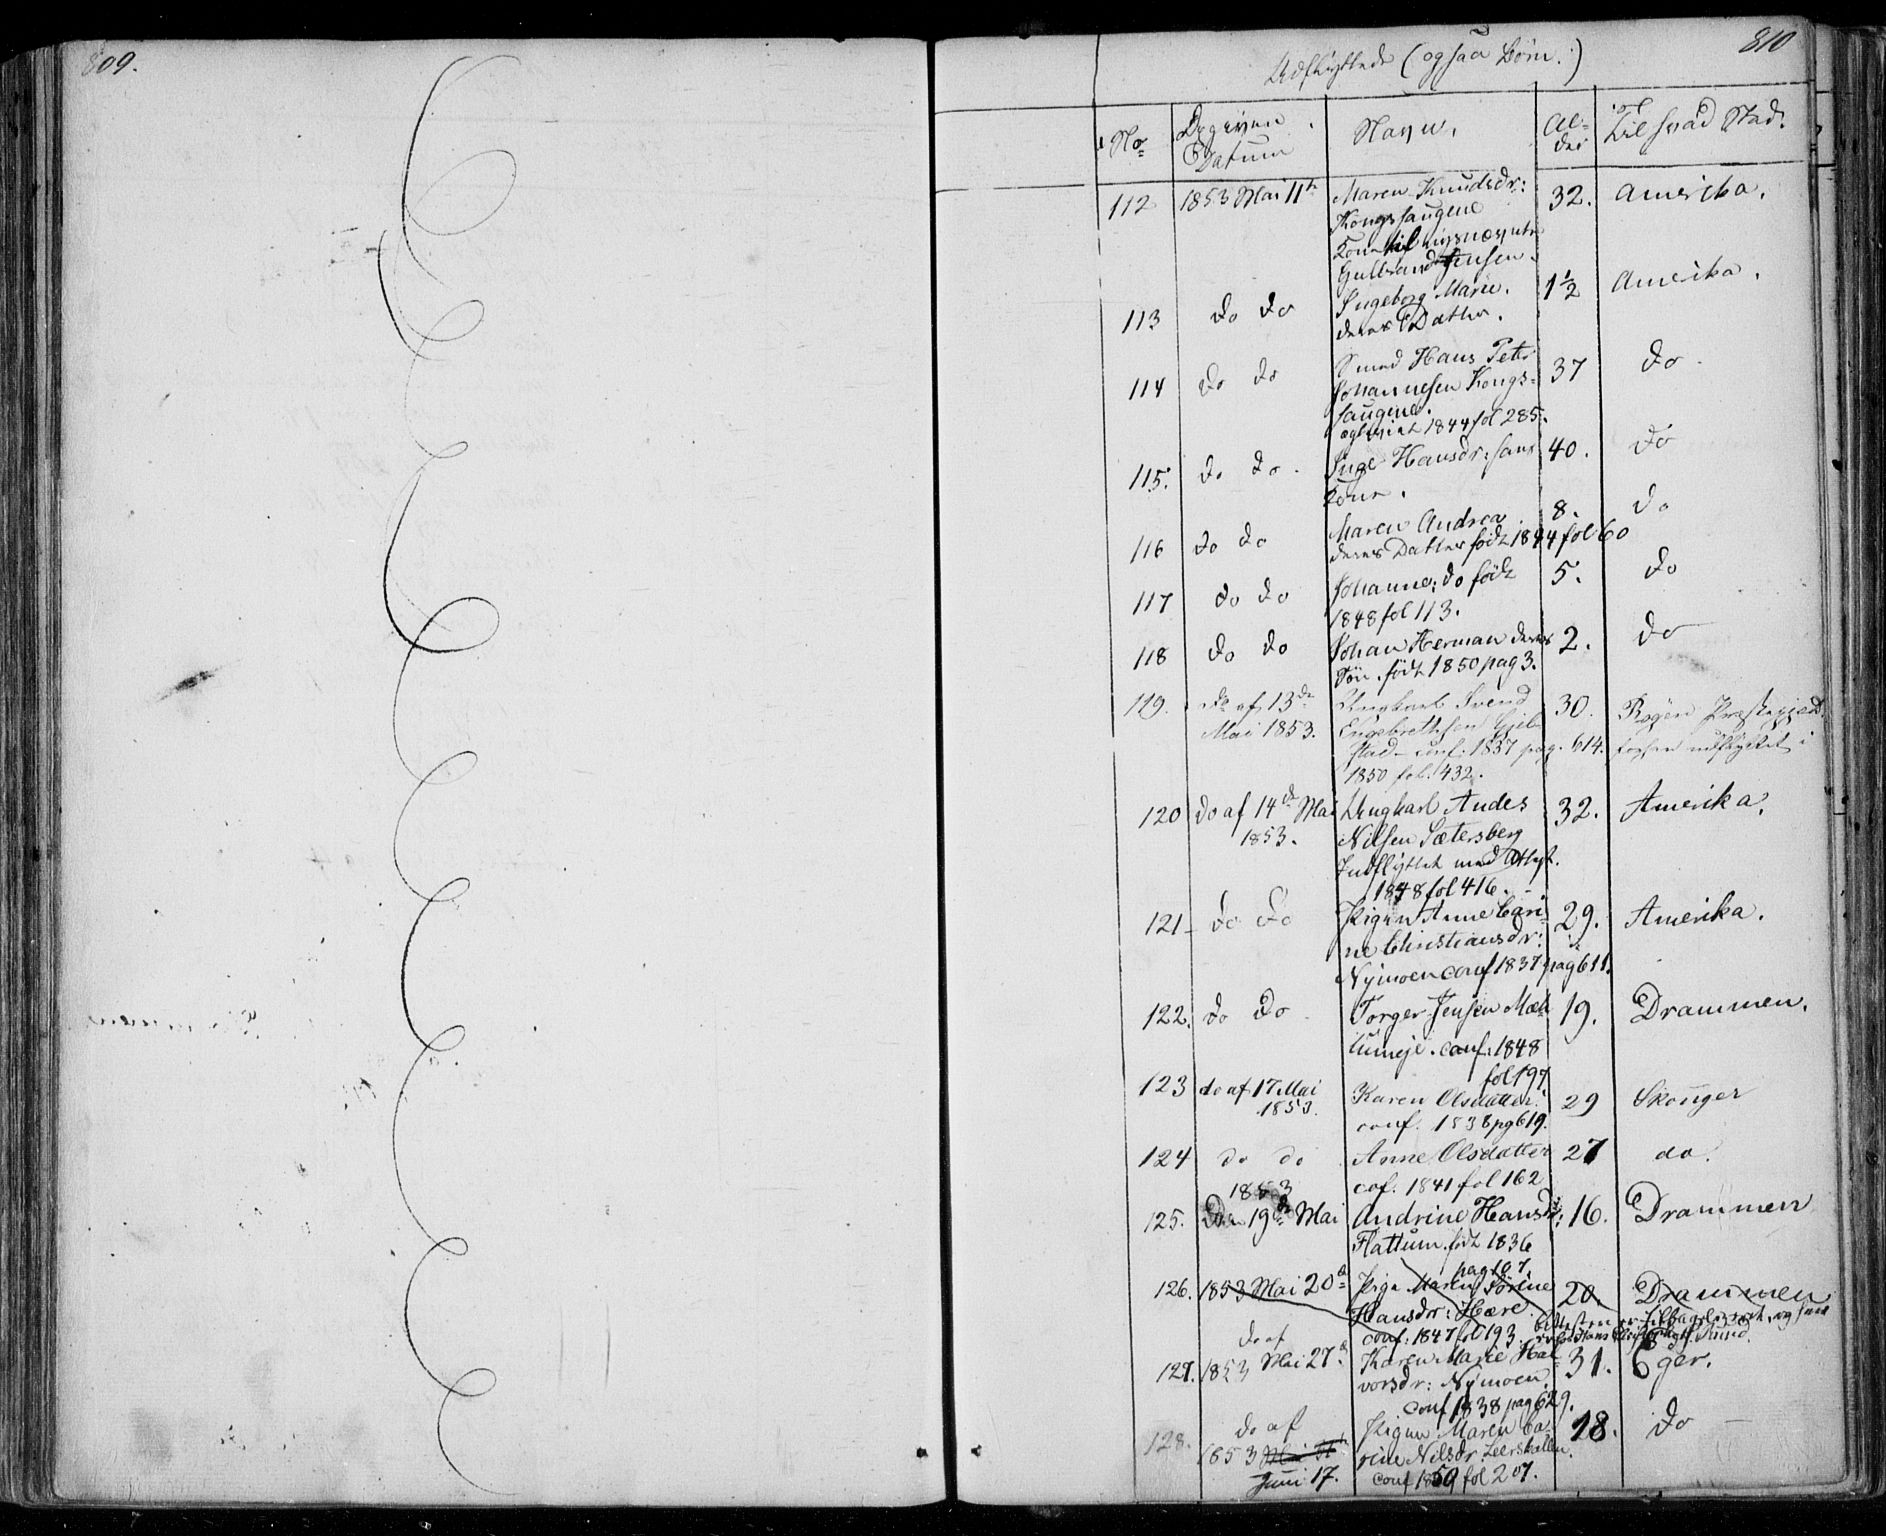 809.
810
Udflyttede (ogsaa Börn.)
No
Opgiven Datum
Navn.
Alder
til hvad Sted.
112 1853 Mai 11te Maren Knudsdr: 32. Amerika.
Kongshaugene
Kone til
Gulbrand Jensen.
113 do do Ingeborg Marie. 1½ Amerika.
deres Datter.
114 do do Smed Hans Peter 37 do
Johannesen Kongs-
haugene.
1844 fol 285.
115. do do Inge Hansdr: hans 40. do
Kone.
116 do do Maren Andrea 8. do
deres Datter født 1844 fol 60
117 do do Johanne: do født 5. do
1848 fol 113.
118 do do Johan Herman deres 2. do
Søn. født 1850 pag 3.
119. do af 13de Ungkarl Svend 30. Røgen Præstegjeld
Mai 1853. Engebrethsen
stad - conf. 1837 pag. 614. forhen udflyttet i
1850 fol. 432.
120 do af 14de Mai Ungkarl Andes 32. Amerika.
1853. Nilsen Sætersberg
Indflyttet med Attest.
1848 fol 416.
121 do do Pigen Anne Cari- 29. Amerika.
ne Christiansdr:
Nymoen conf 1837 pag 611.
122. do do Torger Jensen 19. Drammen.
conf: 1848
fol 197
123 do af 17 Mai Karen Olsdatter. 29 Skouger
1853. conf. 1838 pg 619.
124 do do Anne Olsdatter 27 do.
cof. 1841 fol 162
1853
125. Den 19de Mai Andrine Hansdr: 16. Drammen
Flattum. født 1836
pag 107.
126. 1853 Mai 20de Pige Maren Sørine 20. Drammen
Hansdr: Hære.
conf: 1847 fol 193. er tilbageleveret, og hun
do af
127. 1853 Mai 27de Karen Marie Hal- 31. Eger.
vorsdr: Nymoen.
conf 1838 pag 629.
do af
128. 1853 Pigen Maren Ca- 18. do
Juni 17. rine Nilsdr. Leerskallen.
conf 1850 fol 207.